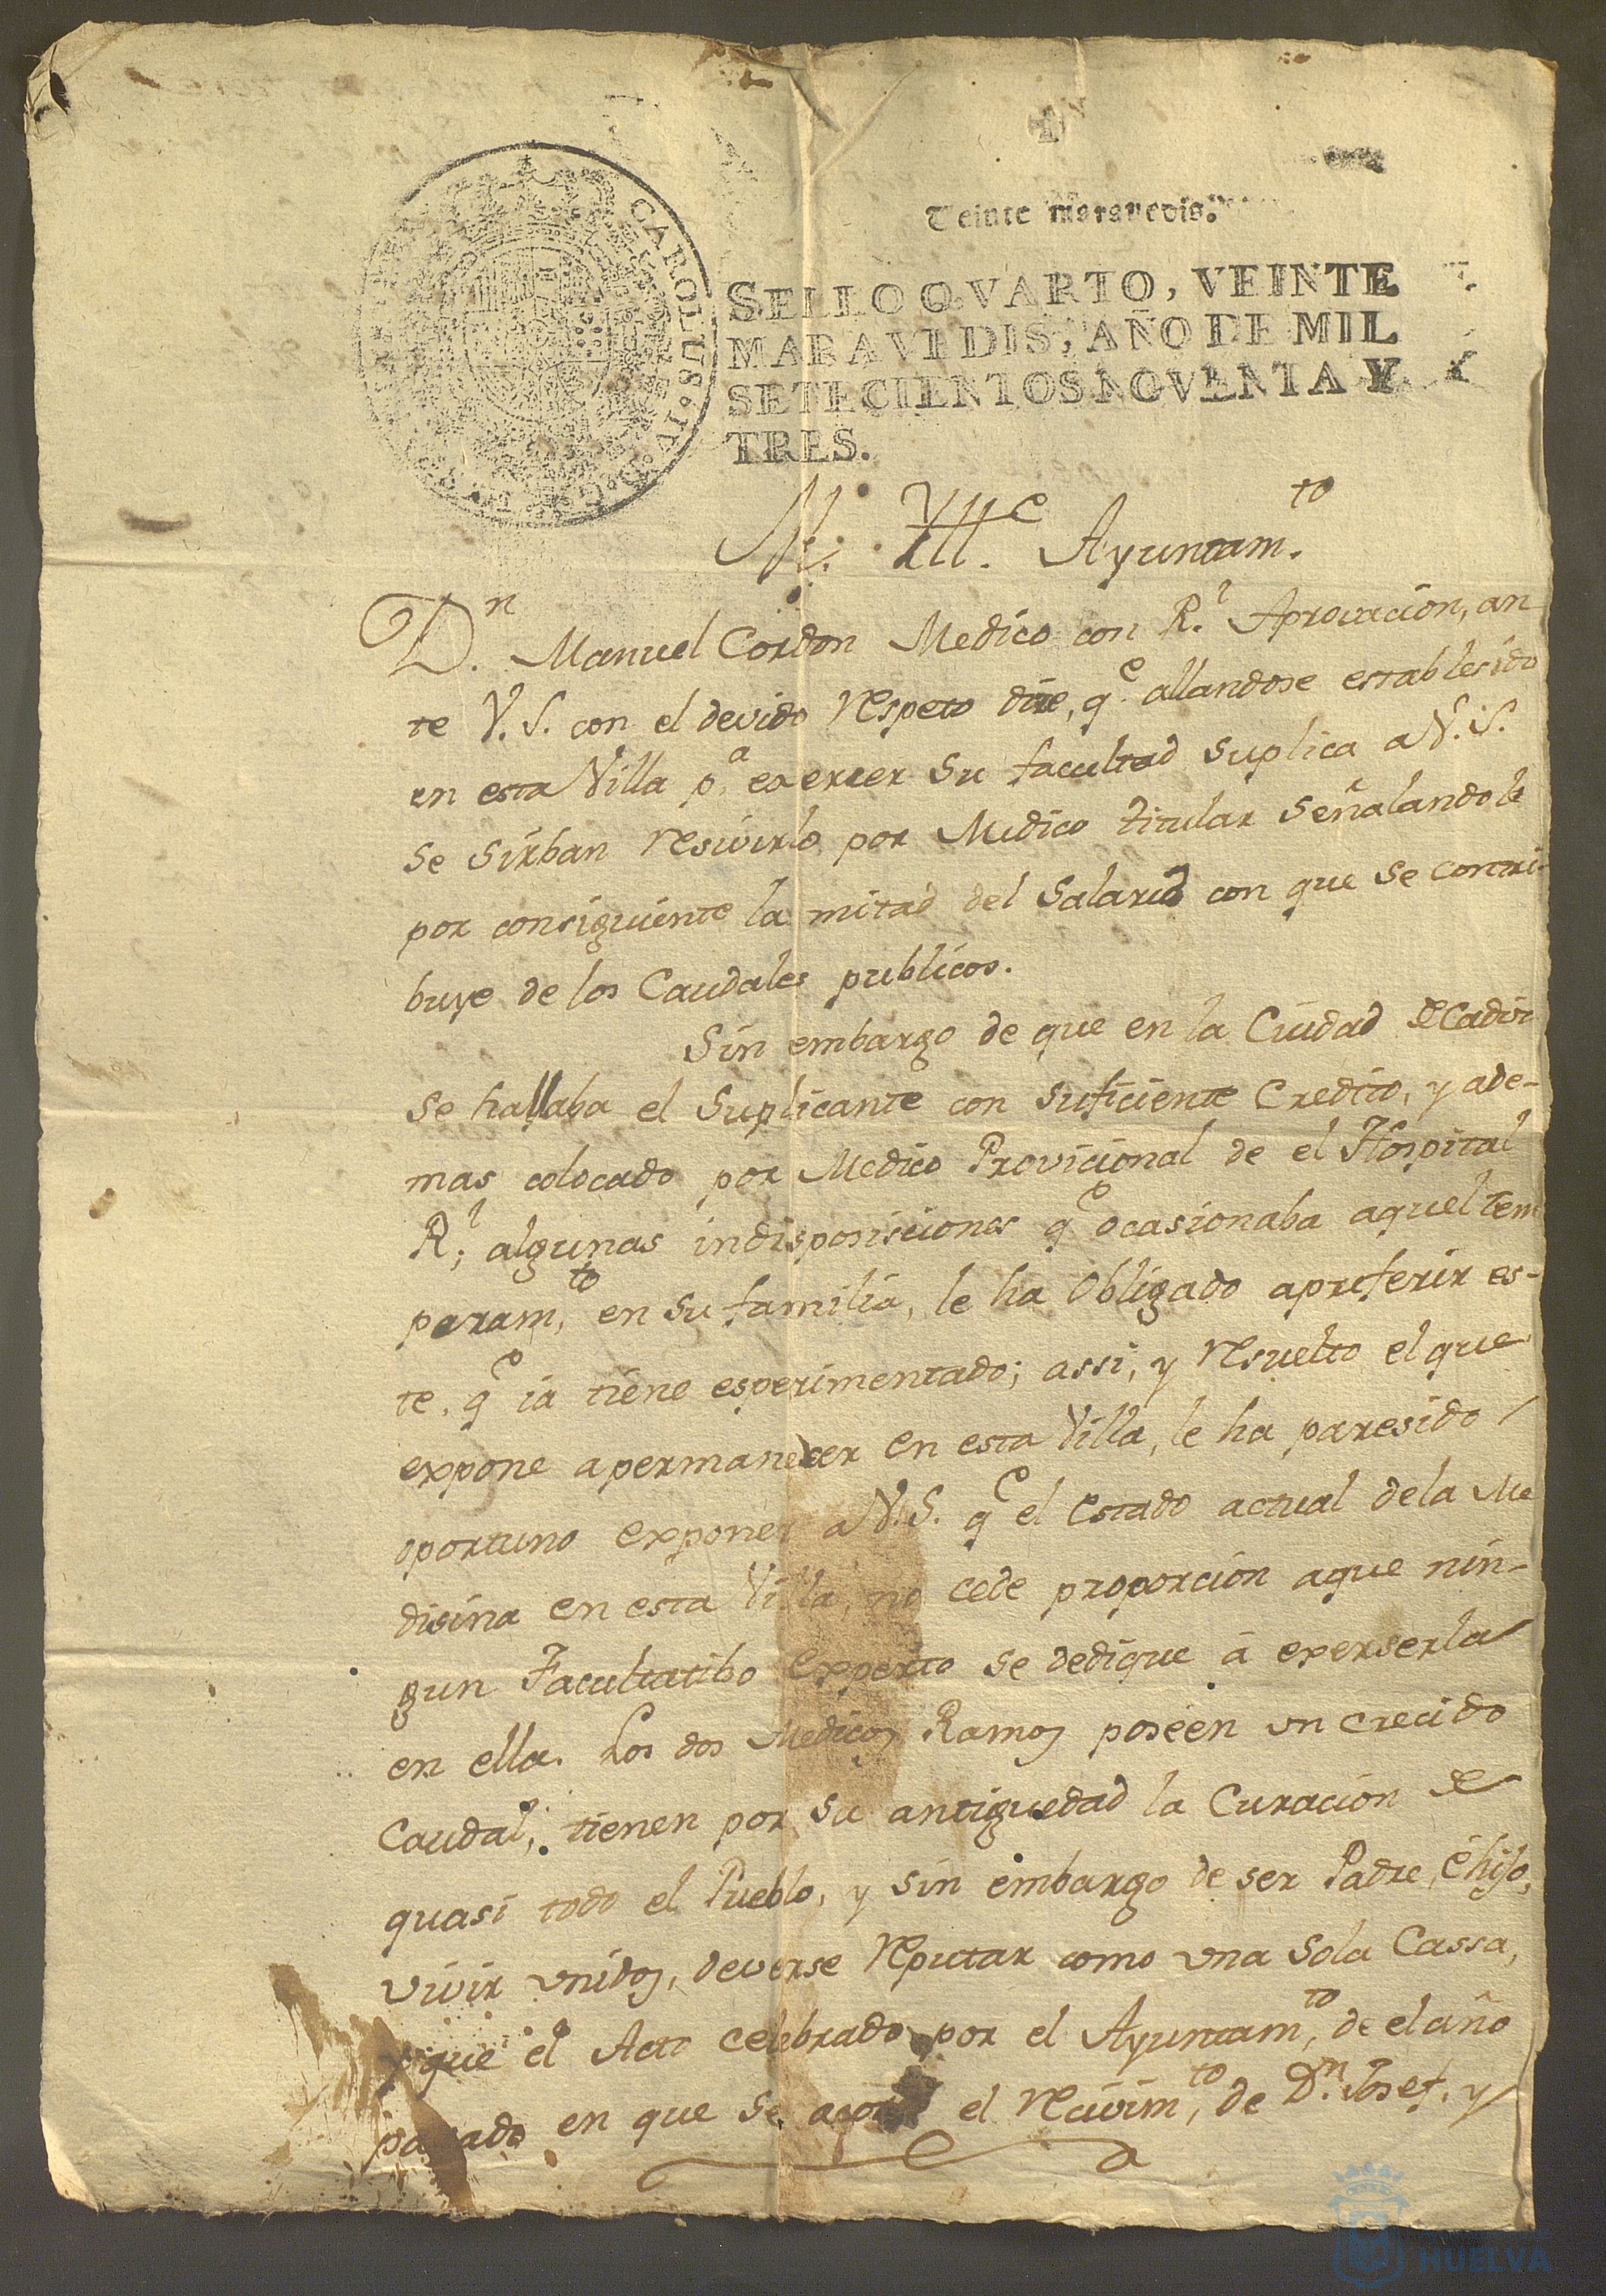 Veinte maravedis.
SELLO QVARTO, VEINTE
MARAVEDIS, AÑO DE MIL
SETECIENTOS NOVENTA Y
TRES.
CAROLUS·IV·D·G·
M. Ylle. Ayuntam.to
D.n Manuel Cordon Medico con R.l Aprovacion, an
te V.S. con el devido respeto dice, q.e allandose establesido
en esta Villa p.a exercer su facultad suplica a V.S.
se sirban resivirlo por Medico titular señalandole
por consiguiente la mitad del salario con que se contri-
buye de los Caudales publicos.
Sin embargo de que en la Ciudad de Cadiz
se hallaba el suplicante con suficiente Credito, y ade-
mas colocado por Medico Provicional de el Hospital
R.l; algunas indisposisiones q.e ocasionaba aquel tem
peram.to, en su familia, le ha obligado a preferir es-
te, q.e ia tiene esperimentado; assi, y resuelto el que
expone a permanecer en esta Villa, le ha paresido
oportuno exponer a V.S. q.e el estado actual de la Me
disina en esta Villa, no cede proporcion a que nin-
gun Facultatibo experto se dedique á exerserla
en ella. Los dos Medicos Ramos poseen un crecido
Caudal, tienen por su antiguedad la Curacion de
quasi todo el Pueblo, y sin embargo de ser Padre, é hijo,
vivir unidos, deverse reputar como una sola Cassa,
que el Acto celebrado por el Ayuntam.to, de el año
pasado en que se acordó el recivim.to, de D.n Josef, y
HUELVA